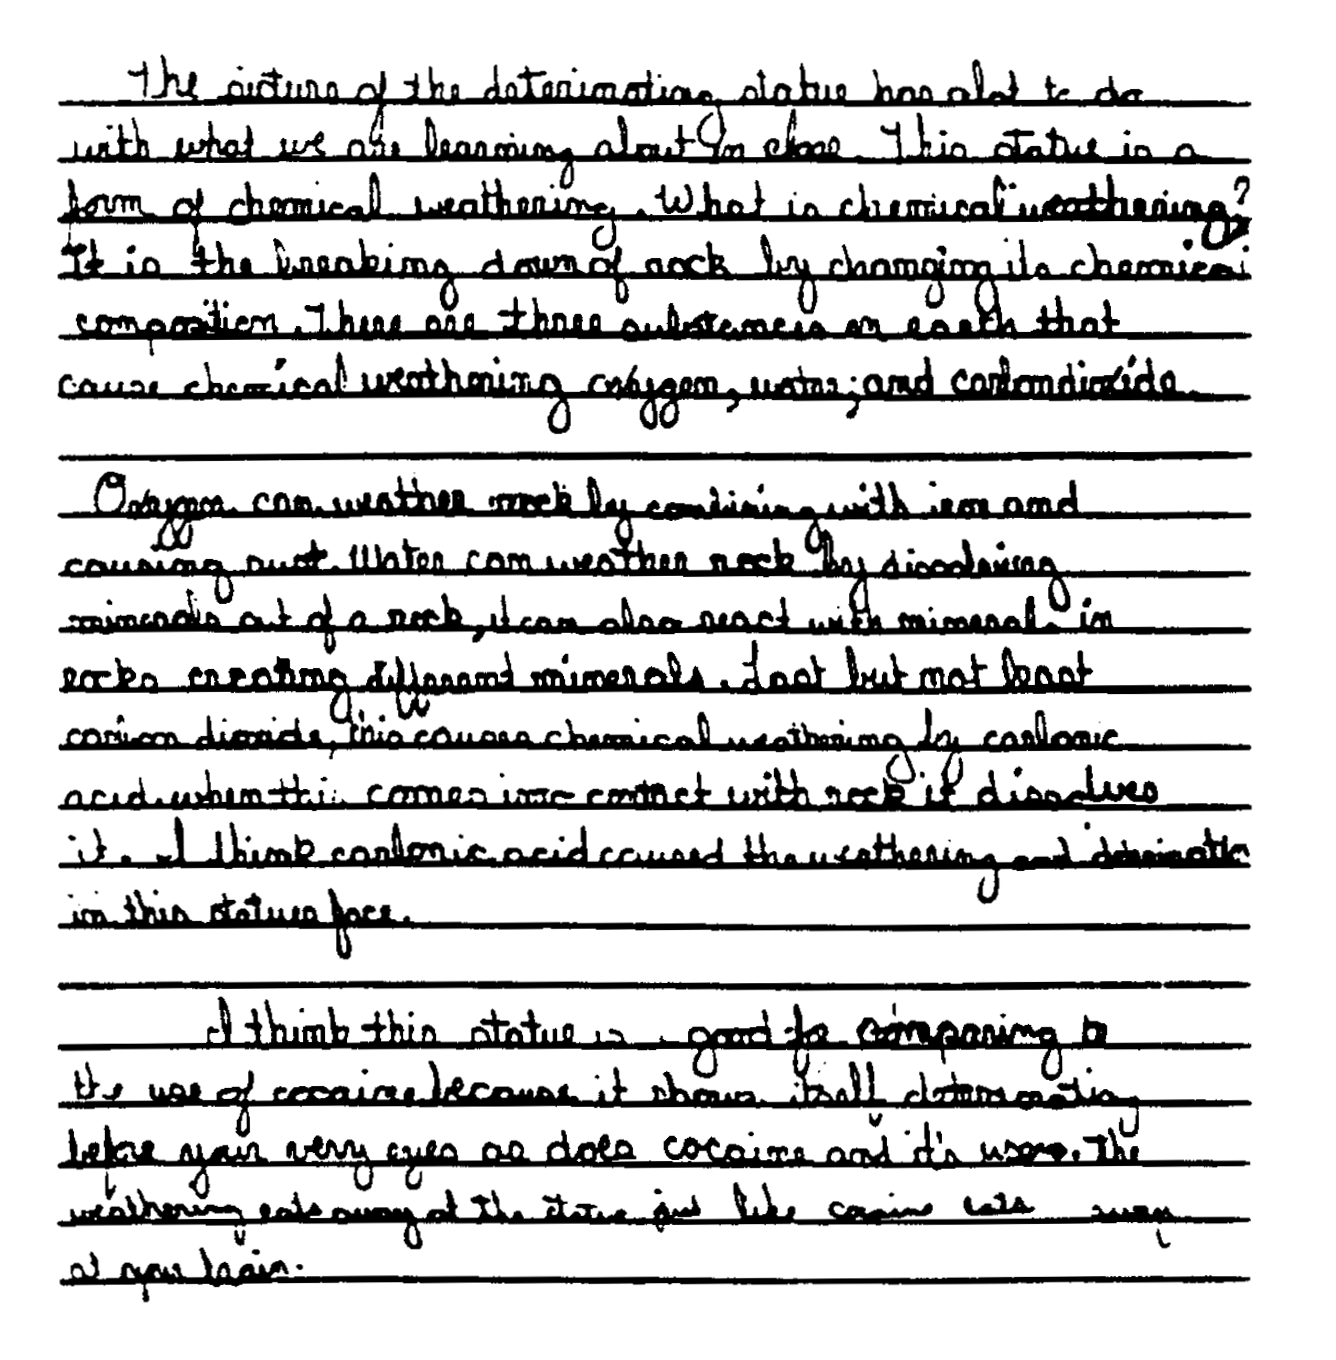 The picture of the deterimating statue has alot to do
with what we are learning about In class. This statue is a
form of chemical weathering. What is chemical weathering?
It is the breaking down of rock by changing its chemical
composition. There are three substances on earth that
cause chemical weathering oxygen, water, and carbondioxide.
Oxygen can weather rock by combining with iron and
causing rust. Water can weather rock by dissolving
minerals out of a rock, it can also react with minerals in
rocks creating different minerals. Last but not least
carbon dioxide, this causes chemical weathering by carbonic
acid. when this comes into contact with rock it dissolves
it. I think carbonic acid caused the weathering and
in this statues face.
I think this statue is good for comparing to
the use of cocaine because it shows itself deterimating
before your very eyes as does cocaine and it's users. The
weathering eats away at the statue just like cocaine eats away
at your brain.